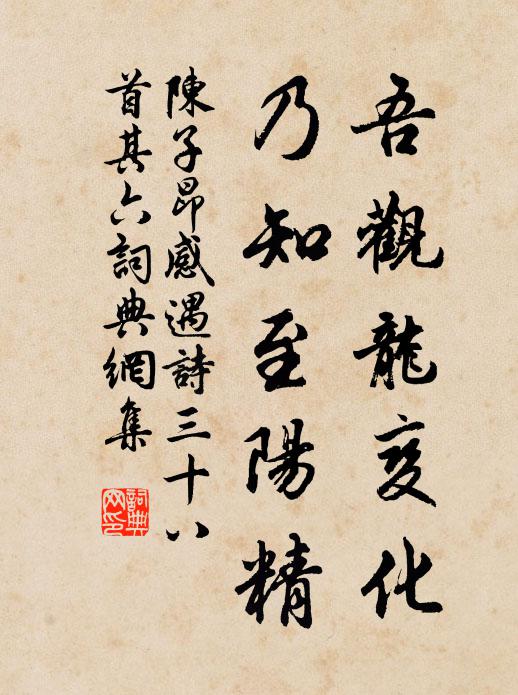 吾觀龍变化
乃知至陽精
陳子昂感遇詩三十八
首其六詞典網集
詞典
网印